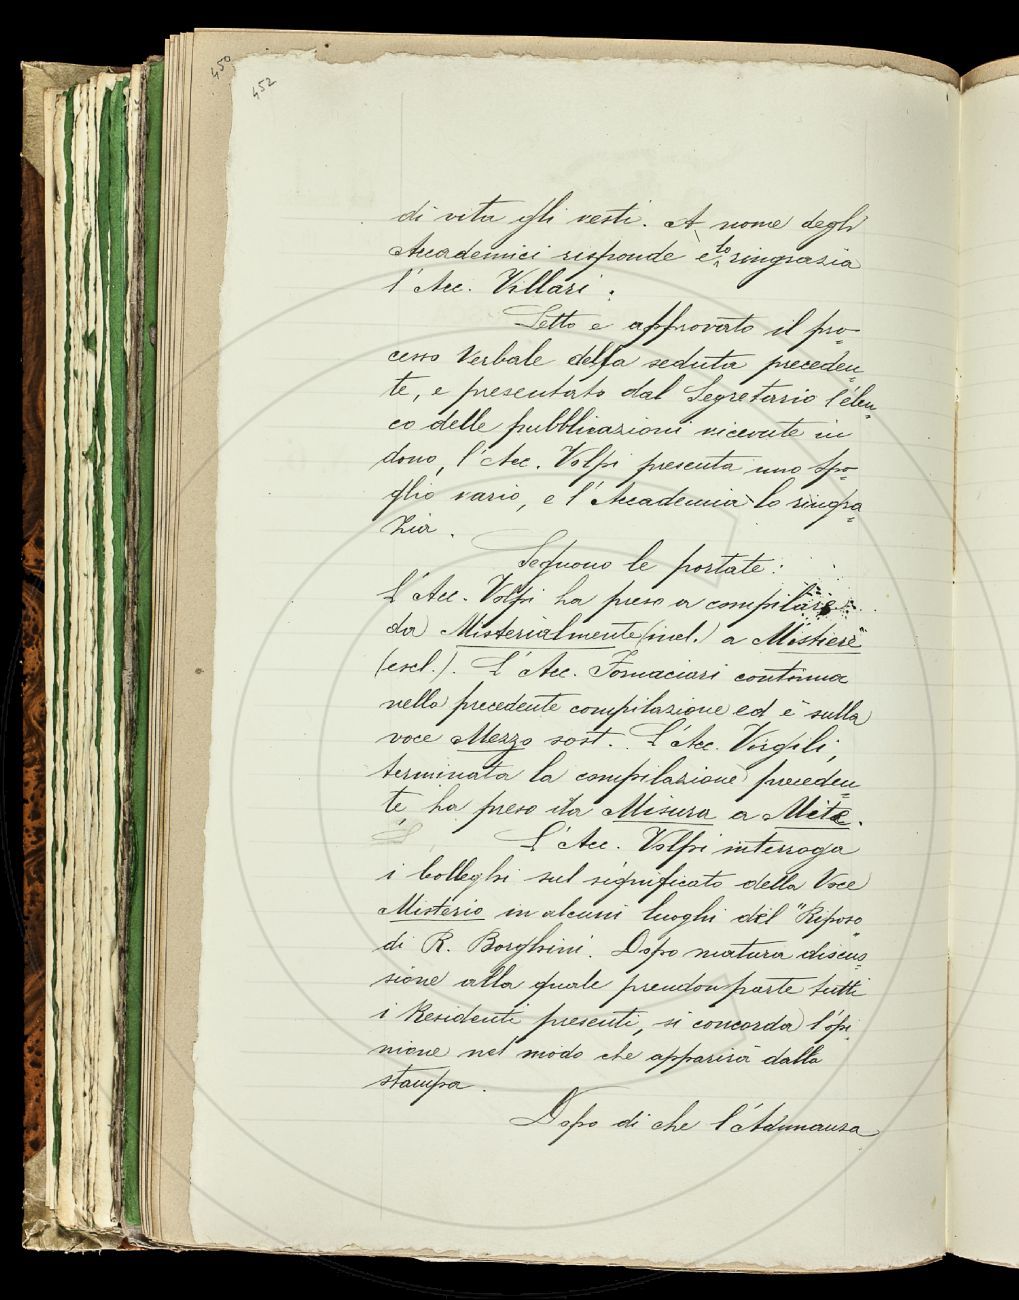 450
452
di vita gli resti. A nome degli
Accademici risponde e lo ringrazia
l'Acc. Villari.
Letto e approvato il pro-
cesso Verbale della seduta preceden-
te, e presentato dal Segretario l'élen-
co delle pubblicazioni ricevute in
dono, l'Acc. Volpi presenta uno Spo-
glio vario, e l'Accademia lo ringra-
zia.
Seguono le portate:
L'Acc. Volpi ha preso a compilare
da Misterialmente (incl.) a Mistiere
(escl.). L'Acc. Fornaciari continua
nella precedente compilazione ed è sulla
voce Mezzo sost. L'Acc. Virgili,
terminata la compilazione preceden-
te ha preso da Misura a Mite.
L'Acc. Volpi interroga
i Colleghi sul significato della Voce
Misterio in alcuni luoghi del "Riposo"
di R. Borghini. Dopo matura discus-
sione alla quale prendon parte tutti
i Residenti presenti, si concorda l'opi-
nione nel modo che apparirà dalla
stampa.
Dopo di che l'Adunanza